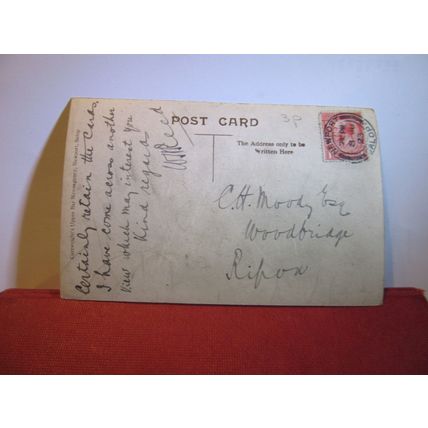 POST CARD
3p
The Address only to be
Written Here
Certainly retain the Cards,
I have come across another
View which may interest you
Kind regards
C. H. Moody Esq
Woodbridge
Ripon
NEWPORT
SALOP
23